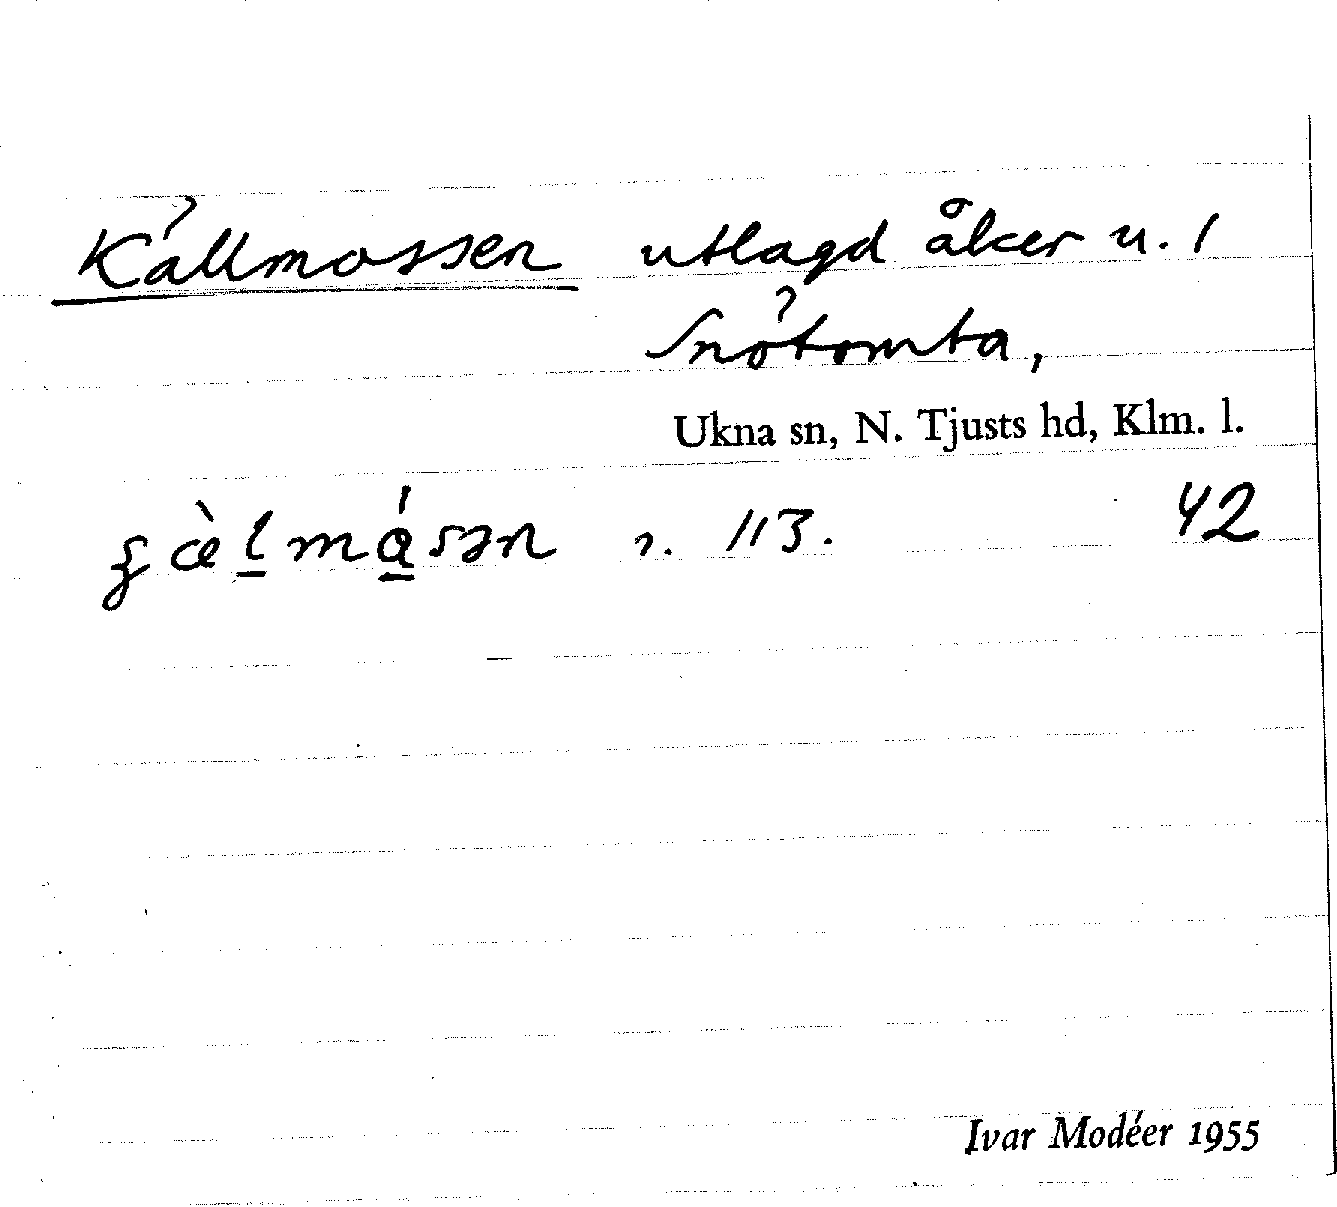 Källmossen utlagd åker u. 1
Snötomta,
Ukna sn, N. Tjusts hd, Klm. l.
ʒæ̀l̠mǻ̠sən n. 113. 42
Ivar Modéer 1955